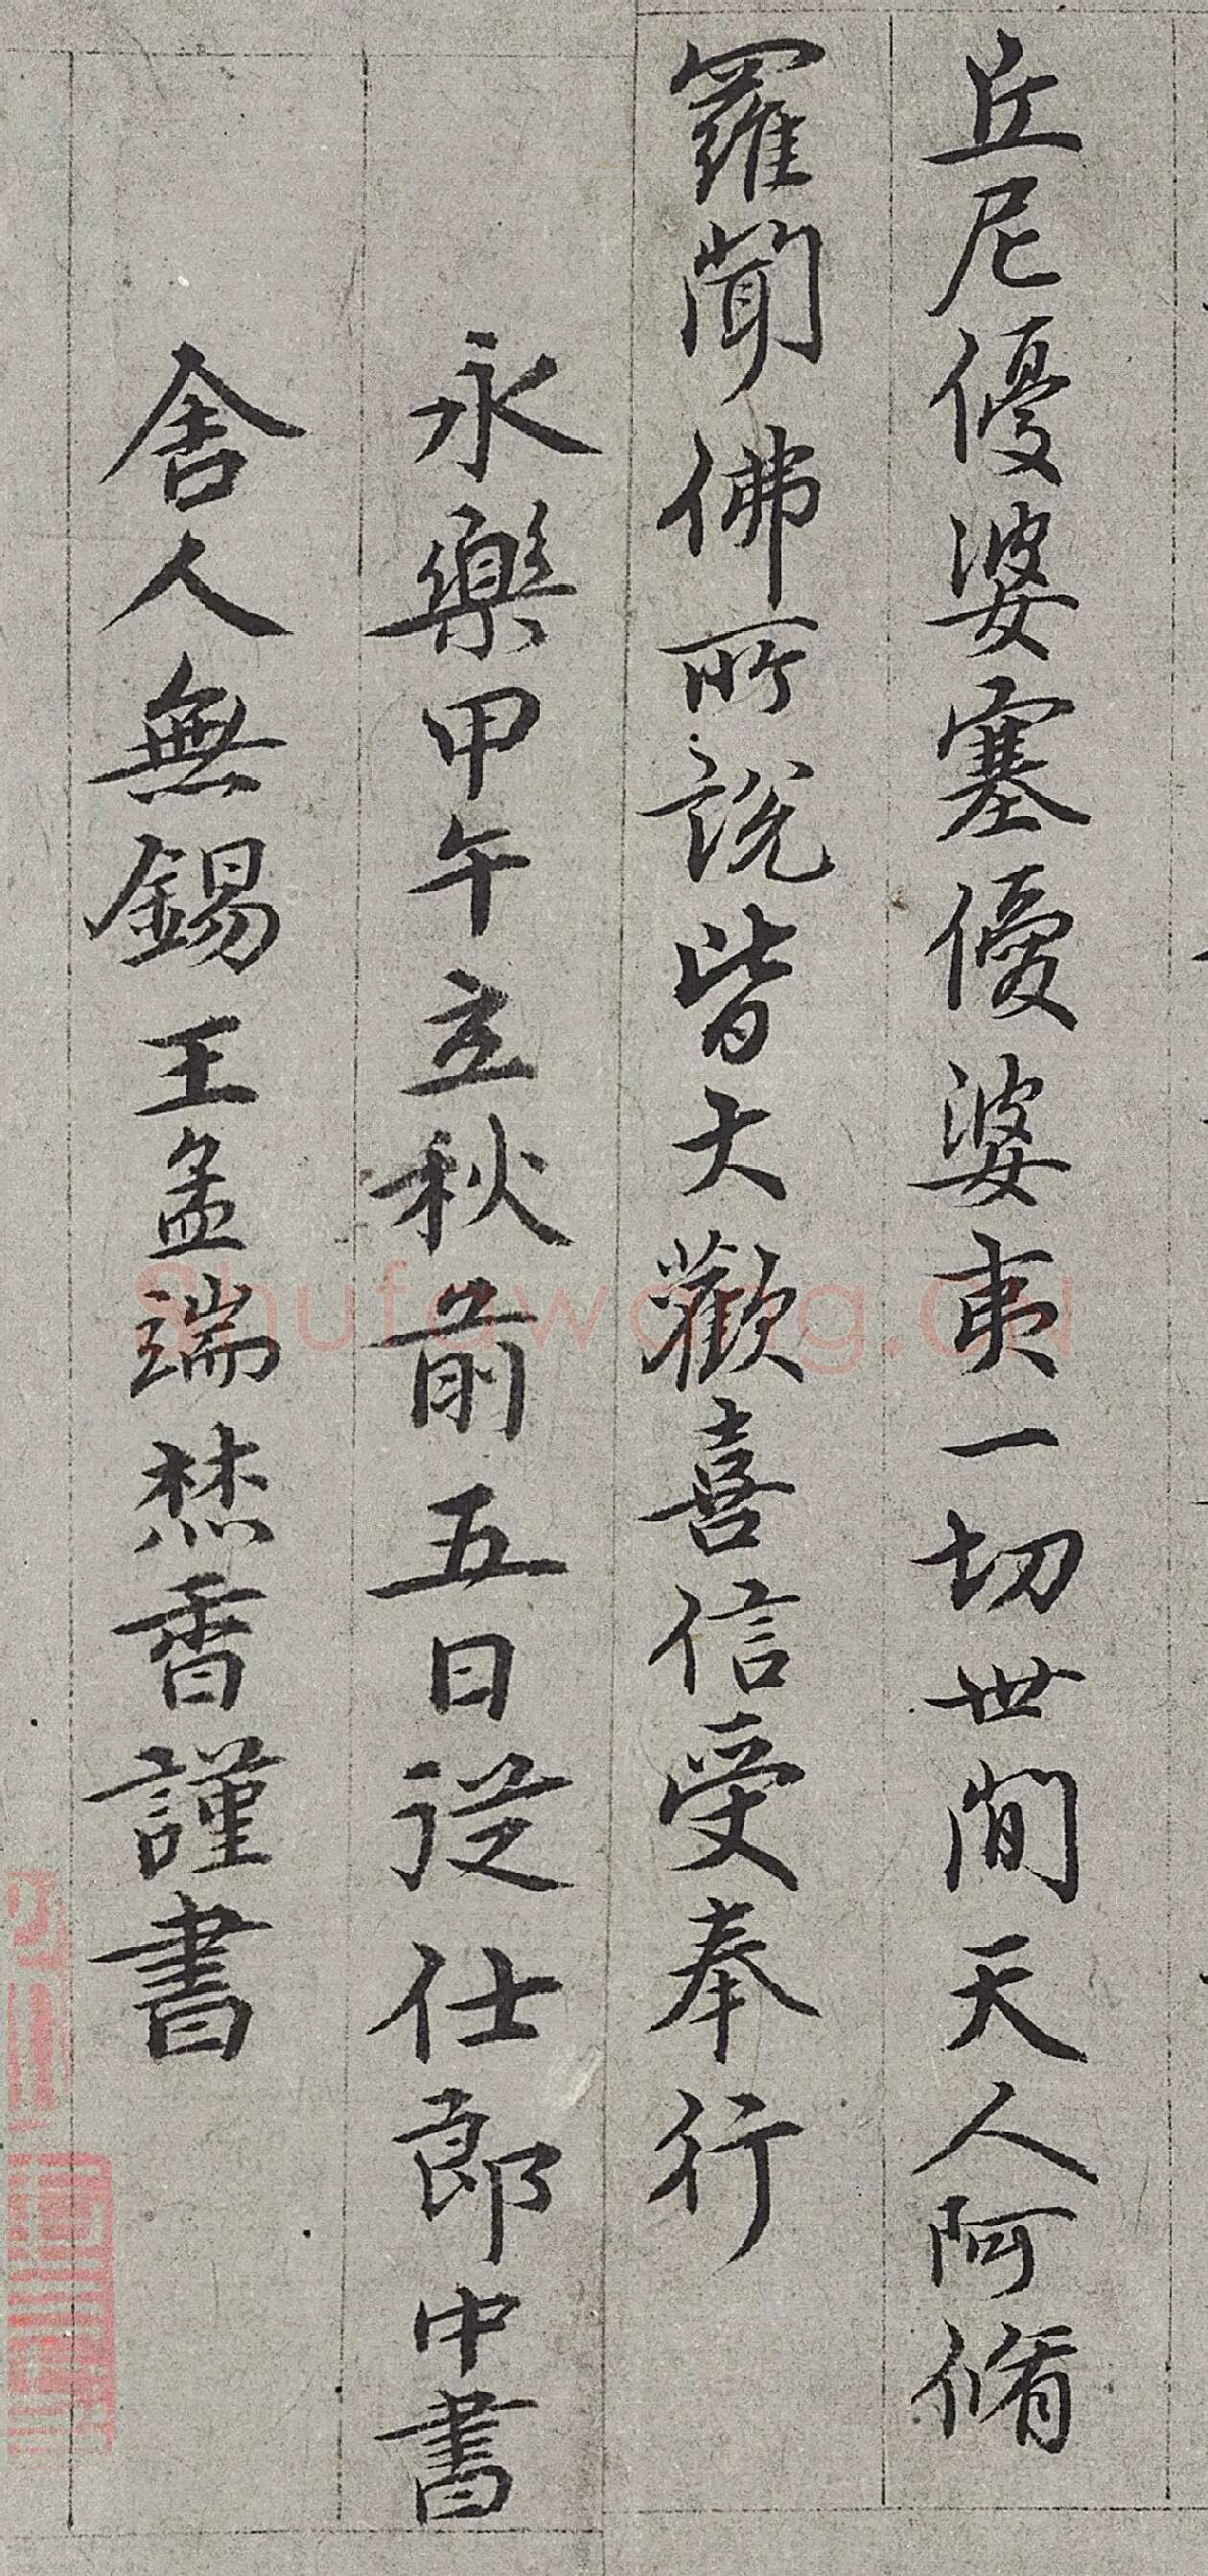 丘尼優婆塞優婆夷一切世間天人阿脩
羅聞佛所說皆大歡喜信受奉行
永樂甲午立秋前五日從仕郎中書
舍人無錫王孟端焚香謹書
shufawang.cn